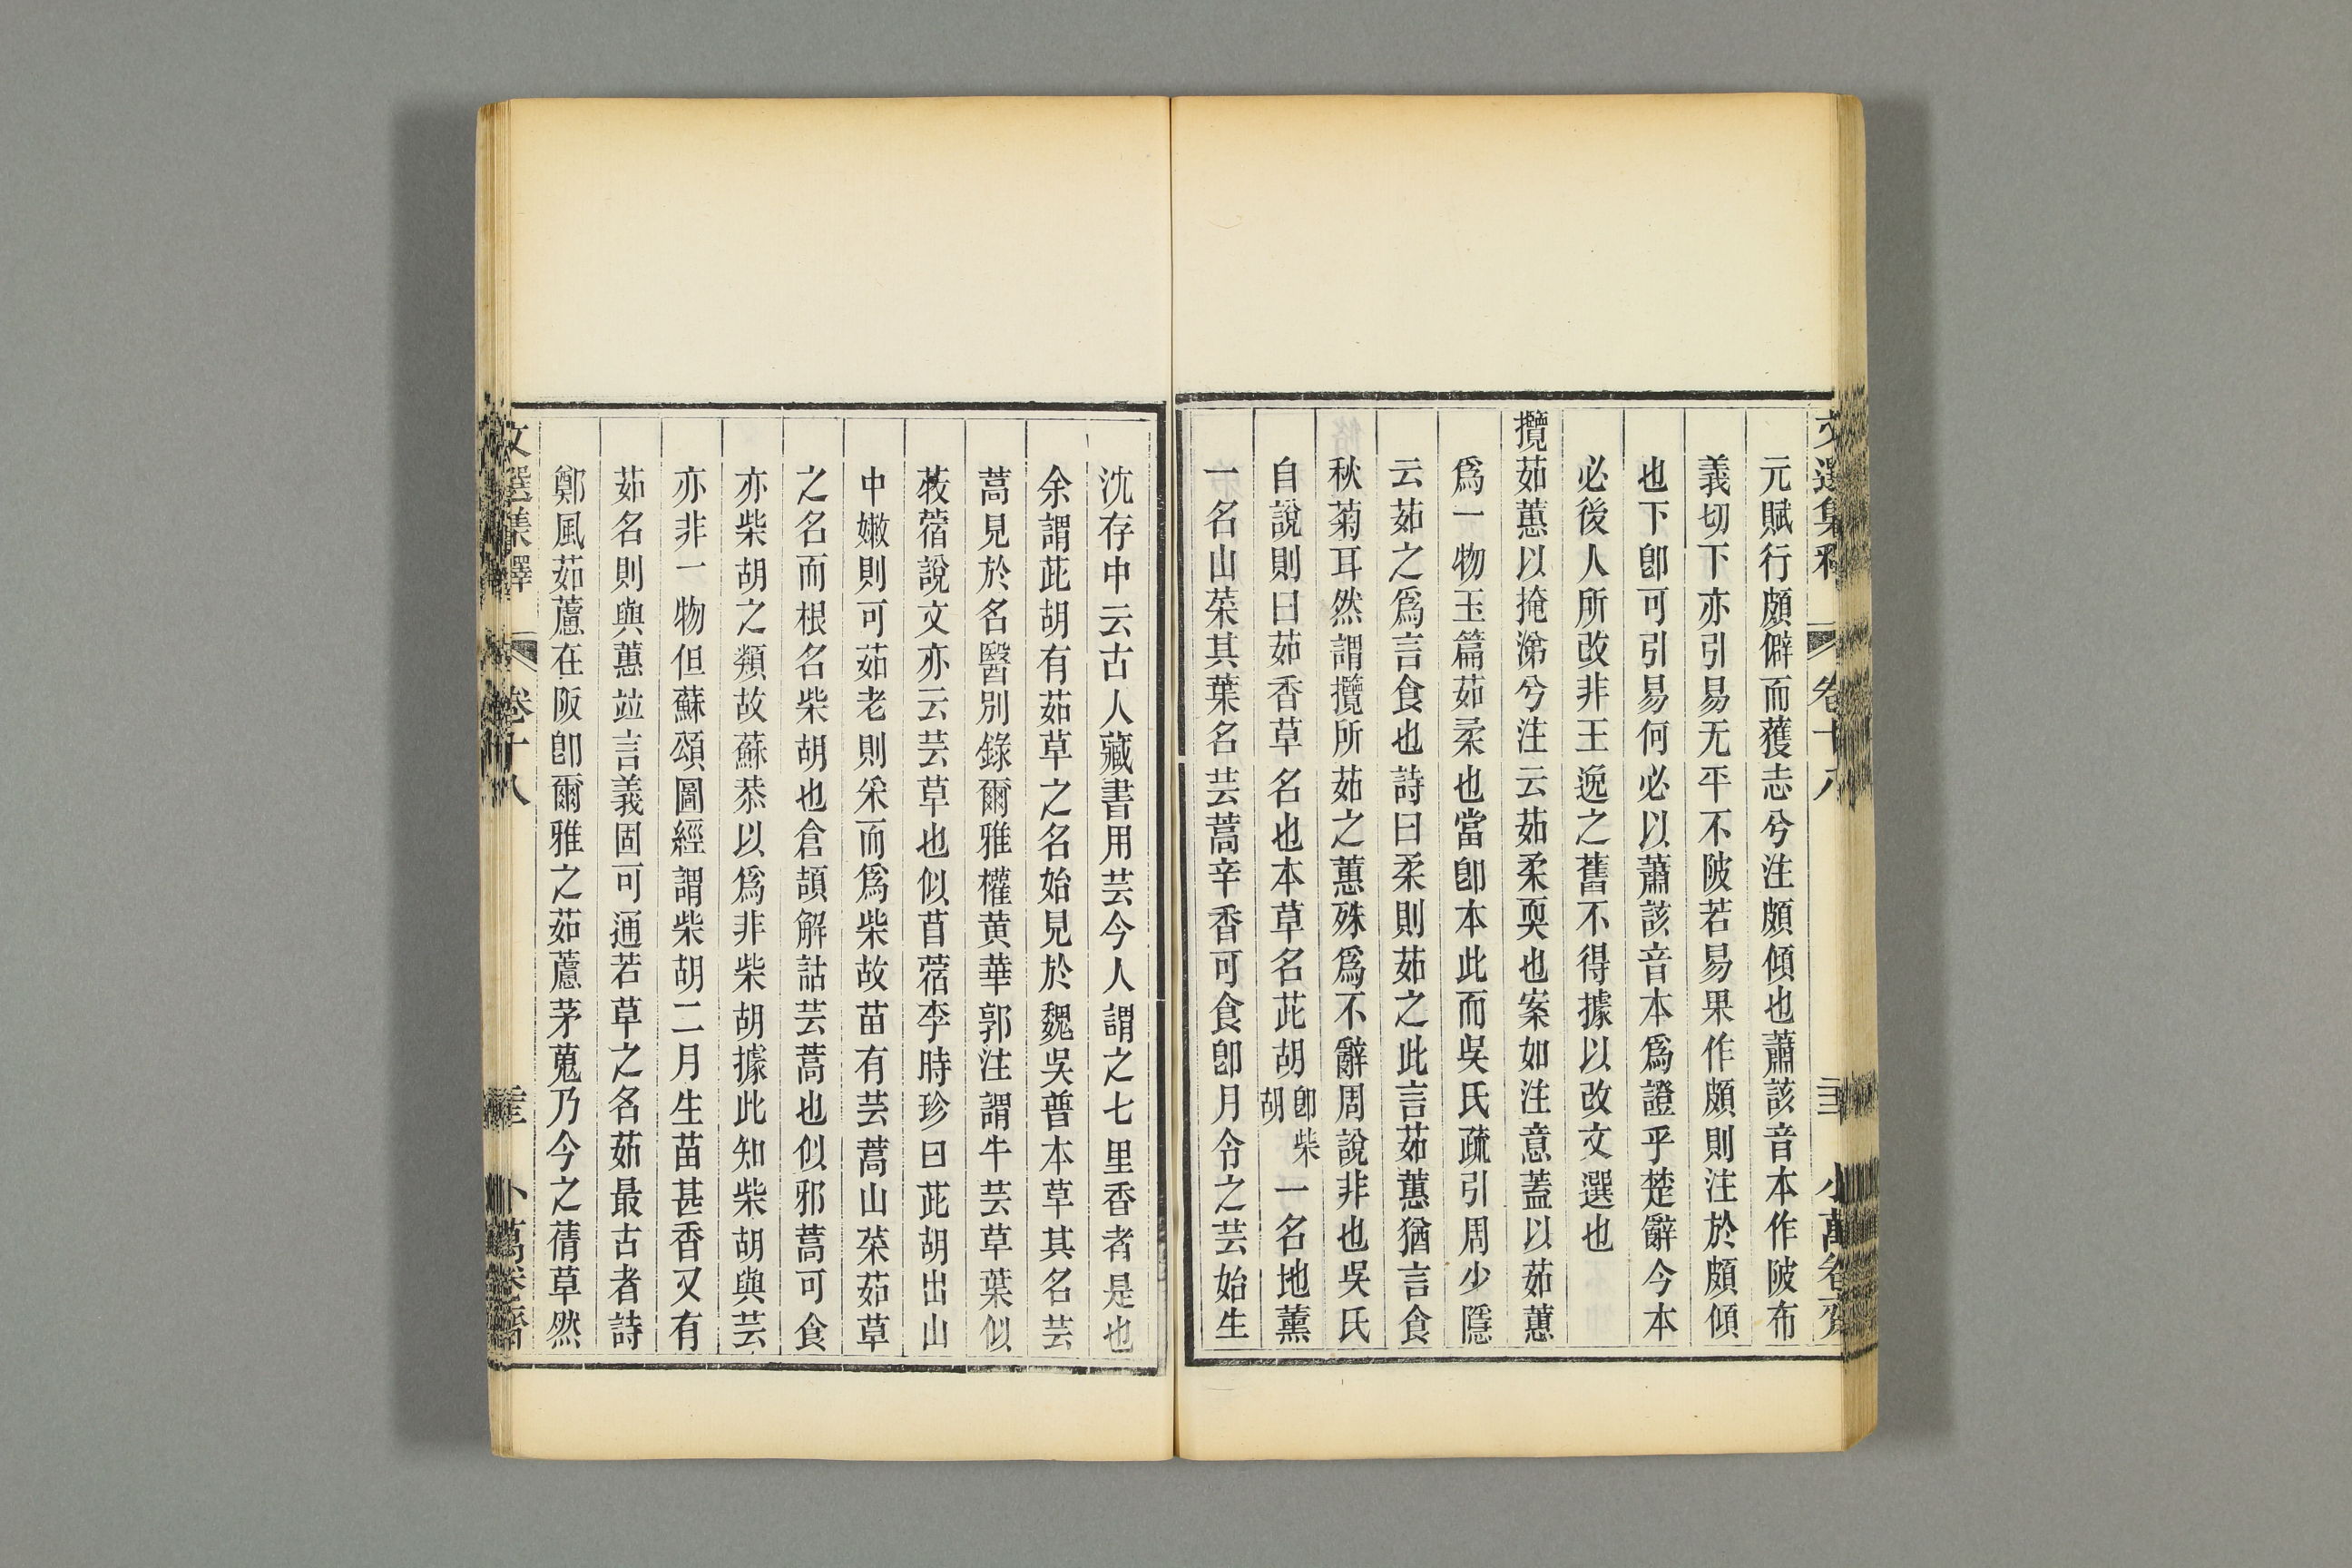 文選集釋 卷十八 三 小萬卷齋
元賦行頗僻而獲志兮注頗傾也蕭該音本作陂布
義切下亦引易无平不陂若易果作頗則注於頗傾
也下卽可引易何必以蕭該音本爲證乎楚辭今本
必後人所改非王逸之舊不得據以改文選也
攬茹蕙以掩涕兮注云茹柔耎也案如注意蓋以茹蕙
爲一物玉篇茹柔也當卽本此而吳氏疏引周少隱
云茹之爲言食也詩曰柔則茹之此言茹蕙猶言食
秋菊耳然謂攬所茹之蕙殊爲不辭周說非也吳氏
自說則曰茹香草名也本草名茈胡卽柴胡一名地薰
一名山菜其葉名芸蒿辛香可食卽月令之芸始生
沈存中云古人藏書用芸今人謂之七里香者是也
余謂茈胡有茹草之名始見於魏吳普本草其名芸
蒿見於名醫別錄爾雅權黃華郭注謂牛芸草葉似
荍蓿說文亦云芸草也似苜蓿李時珍曰茈胡出山
中嫩則可茹老則采而爲柴故苗有芸蒿山菜茹草
之名而根名柴胡也倉頡解詁芸蒿也似邪蒿可食
亦柴胡之類故蘇恭以爲非柴胡據此知柴胡與芸
亦非一物但蘇頌圖經謂柴胡二月生苗甚香又有
茹名則與蕙竝言義固可通若草之名茹最古者詩
鄭風茹藘在阪卽爾雅之茹藘茅蒐乃今之蒨草然
文選集釋 卷十八 小萬卷齋